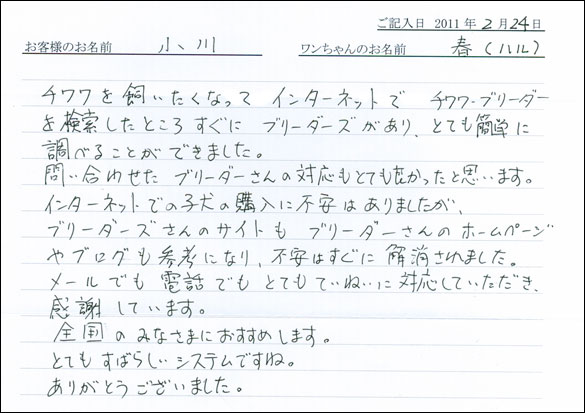 ご記入日 2011年2月24日
お客様のお名前 小川 ワンちゃんのお名前 春(ハル)
チワワを飼いたくなって インターネットで チワワ・ブリーダー
を検索したところすぐに ブリーダーズがあり、とても簡単に
調べることができました。
問い合わせた ブリーダーさんの対応もとても良かったと思います。
インターネットでの子犬の購入に不安はありましたが、
ブリーダーズさんのサイトも ブリーダーさんのホームページ
やブログも参考になり、不安はすぐに解消されました。
メールでも 電話でも とてもていねいに対応していただき、
感謝しています。
全国のみなさまにおすすめします。
とてもすばらしいシステムですね。
ありがとうございました。